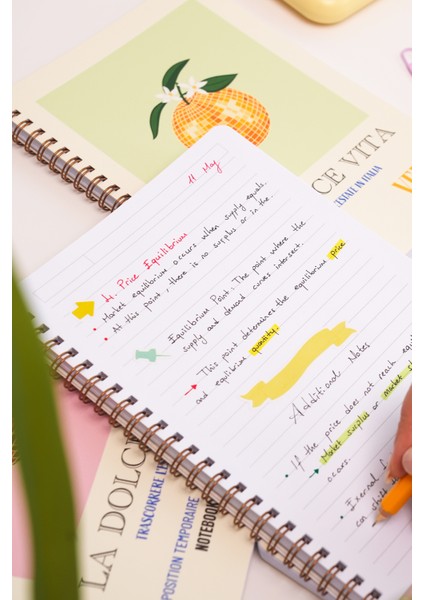 11 May
4. Price Equilibrium
Market equilibrium occurs when supply equals
At this point, there is no surplus or in the
Equilibrium Point: The point where the
supply and demand curves intersect.
This point determines the equilibrium price
and equilibrium quantity.
Additional Notes
If the price does not reach equi
Market surplus or market s
occurs.
Exernal f
can s
CE VITA
ESTATE IN ITALIA
LA DOLC
TRASCORRERE L'ES
POSITION TEMPORAIRE
NOTEBOOK